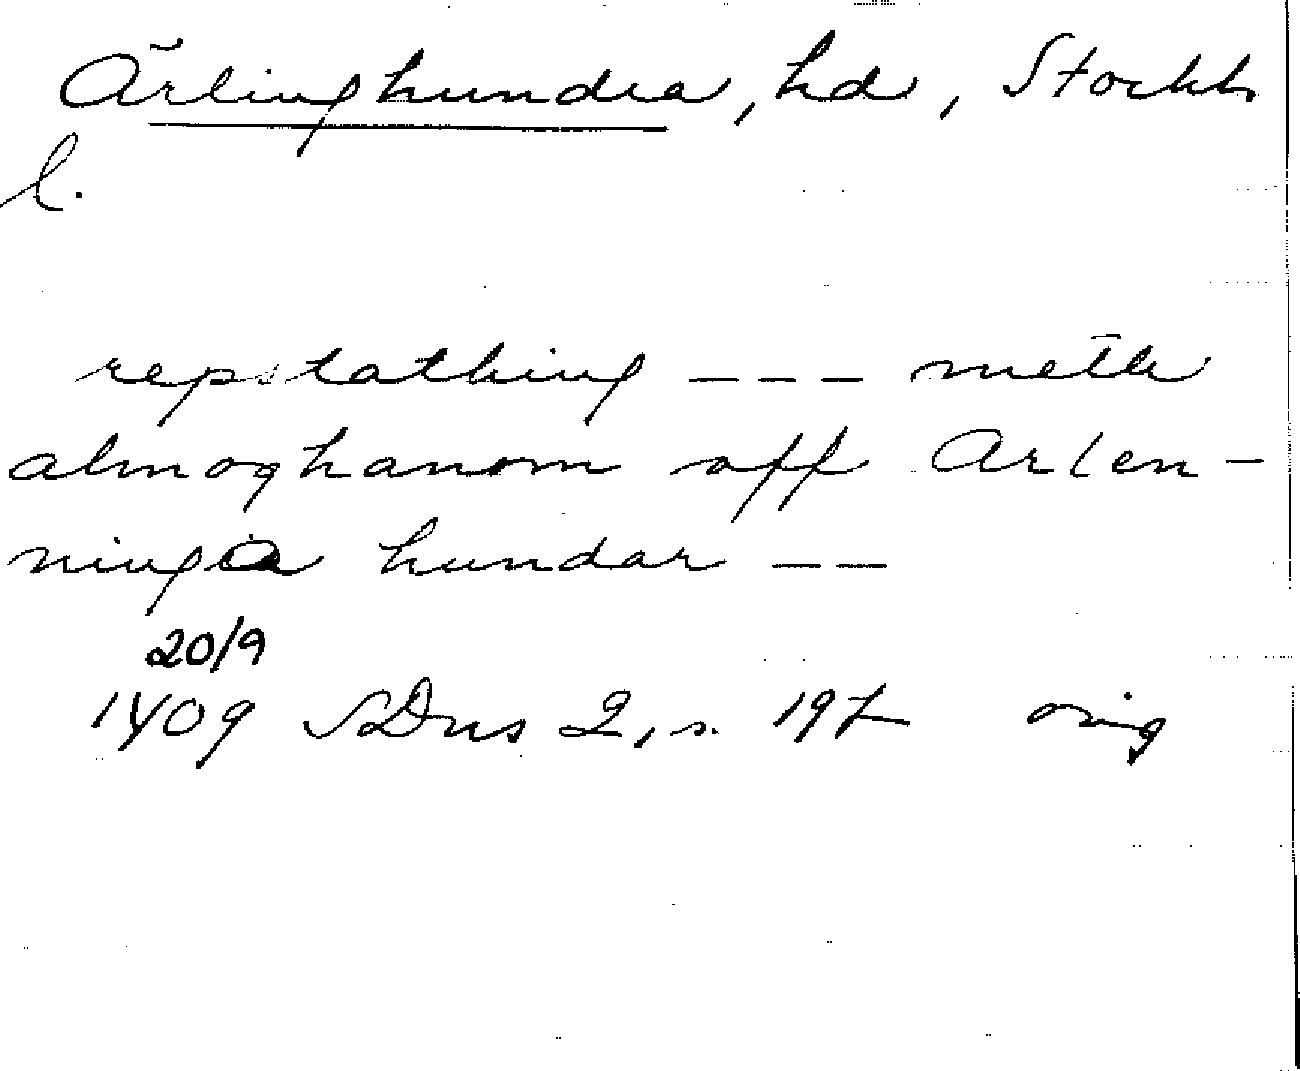 Ärlinghundra, hd, Stockh
l.
repstathing --- meth
almoghanom aff Arlen-
ningia hundar --
20/9
1409 SDns 2, s. 197 orig